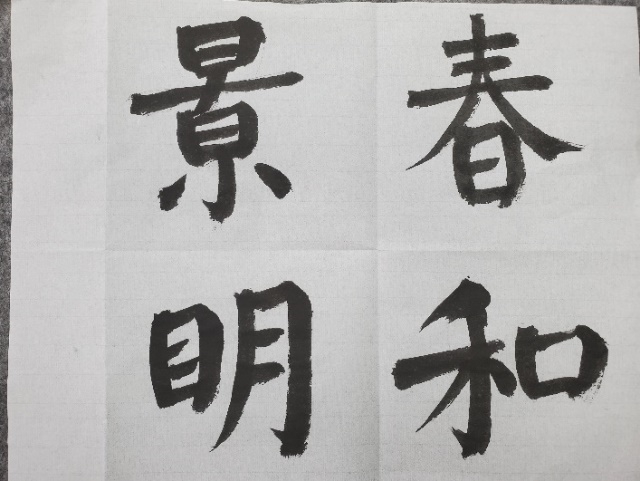 春和
景明